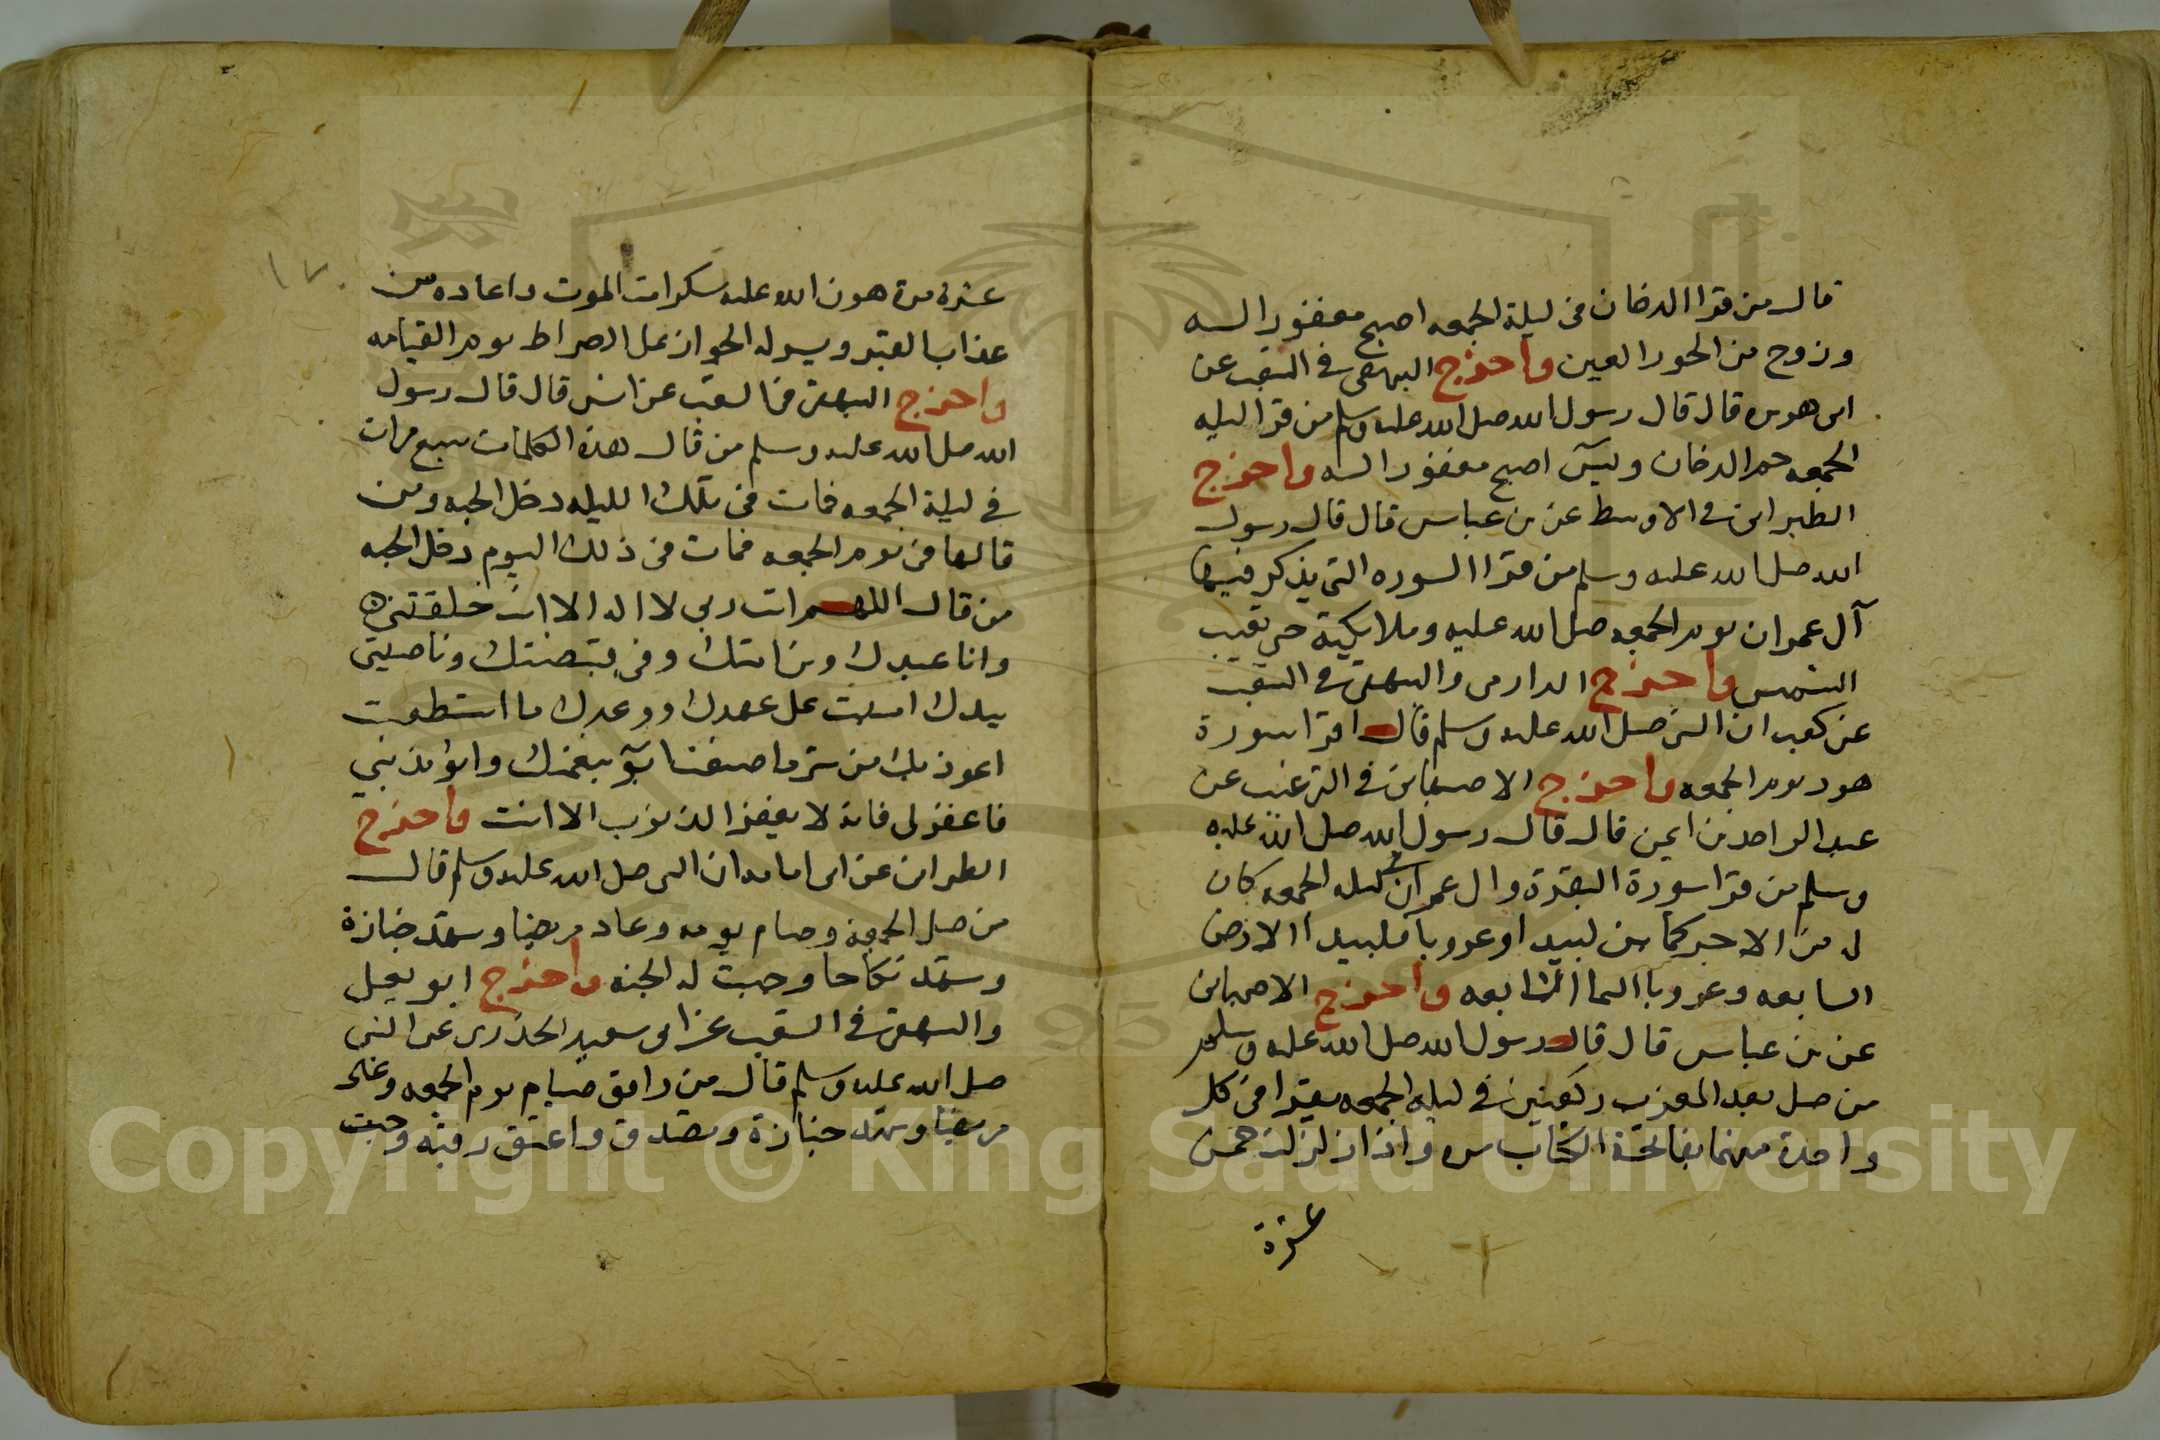 قال من قرا الدخان فى ليلة الجمعه اصبح مغفورا له
وزوج من الحور العين واخرج البيهقى فى الشعب عن
ابى هريره قال قال رسول الله صلى الله عليه وسلم من قرا ليله
الجمعه حم الدخان ويس اصبح مغفورا له واخرج
الطبرانى فى الاوسط عن بن عباس قال قال رسول
الله صلى الله عليه وسلم من قرا السوره التى يذكر فيها
آل عمران يوم الجمعه صلى الله عليه وملايكته حتى تغيب
الشمس واخرج الدارمى والبيهقى فى الشعب
عن كعب ان النبى صلى الله عليه وسلم قال اقرا سورة
هود يوم الجمعه واخرج الاصبهانى فى الترغيب عن
عبد الواحد بن ايمن قال قال رسول الله صلى الله عليه
وسلم من قرا سورة البقرة وال عمران فى ليله الجمعه كان
له من الاجر كما بين لبيدا وعروبا فلبيدا الارض
السابعه وعروبا السما السابعه واخرج الاصبهانى
عن بن عباس قال قال رسول الله صلى الله عليه وسلم
من صلى بعد المغرب ركعتين فى ليله الجمعه يقرا فى كل
واحدة منهما بفاتحة الكتاب مره واذا زلزلت خمس
عشرة
١٧
عشرة مرة هون الله عليه سكرات الموت واعاده من
عذاب القبر ويسر له الجواز على الصراط يوم القيامه
واخرج البيهقى فى الشعب عن انس قال قال رسول
الله صلى الله عليه وسلم من قال هذه الكلمات سبع مرات
فى ليلة الجمعه فمات فى تلك الليله دخل الجنه ومن
قالها فى يوم الجمعه فمات فى ذلك اليوم دخل الجنه
من قال اللهم انت ربى لا اله الا انت خلقتنى
وانا عبدك وبن امتك وفى قبضتك وناصيتى
بيدك امسيت على عهدك ووعدك ما استطعت
اعوذ بك من شر ما صنعت ابؤ بنعمتك وابؤ بذنبي
فاغفر لى فانه لا يغفر الذنوب الا انت واخرج
الطبرانى عن ابى امامه ان النبى صلى الله عليه وسلم قال
من صلى الجمعه وصام يومه وعاد مريضا وشهد جنازة
وشهد نكاحا وجبت له الجنه واخرج ابو يعلى
والبيهقى فى الشعب عن ابى سعيد الخدرى عن النبى
صلى الله عليه وسلم قال من وافق صيام يوم الجمعه وعاد
مريضا وشهد جنازة وتصدق واعتق رقبه وجبت
Copyright © King Saud University